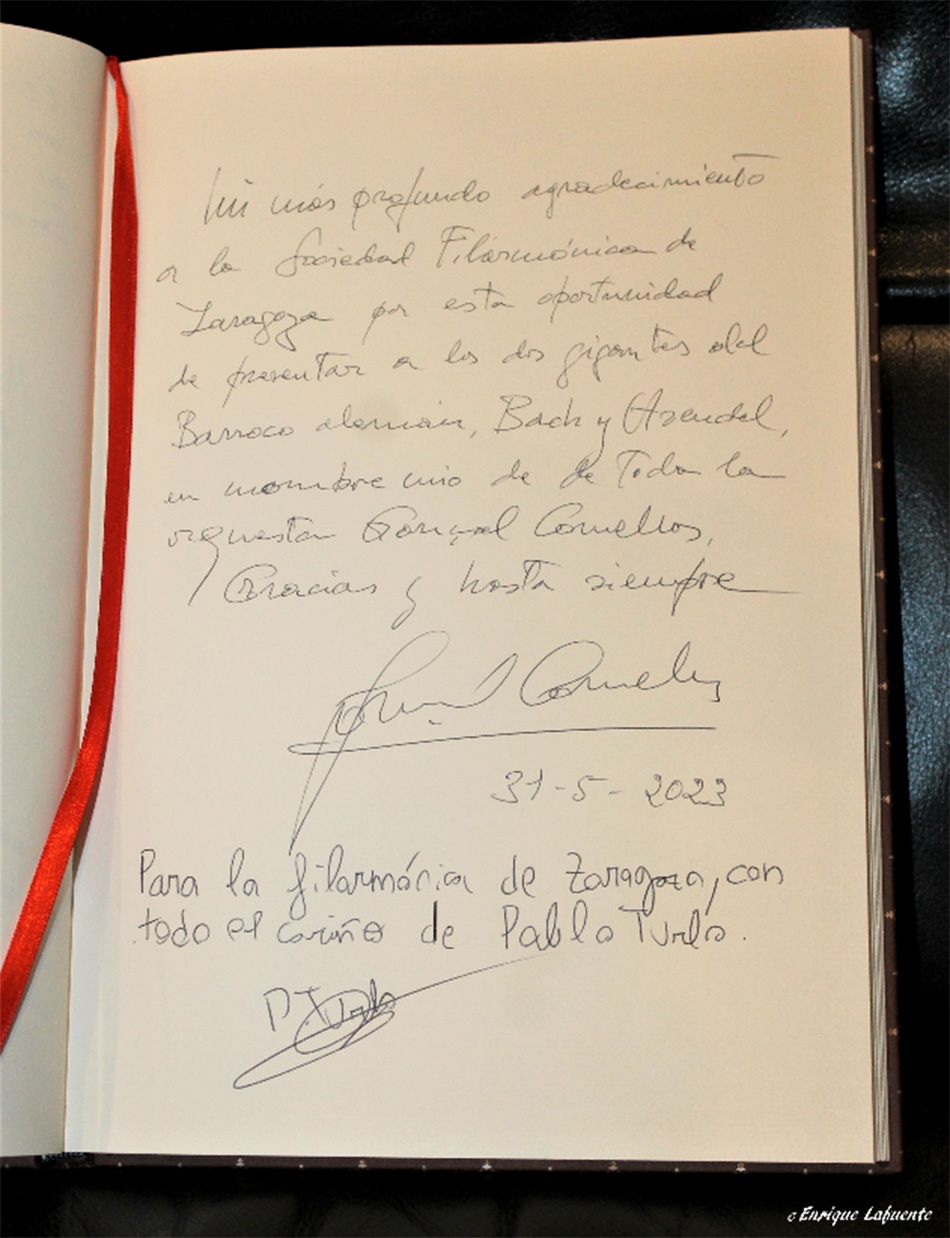 Mi más profundo agradecimiento
a la Sociedad Filarmónica de
Zaragoza por esta oportunidad
de presentar a los dos gigantes del
Barroco alemán, Bach y Haendel,
en nombre mio de de toda la
orquesta Gonçal Comellas,
Gracias y hasta siempre
Gonçal Comellas
31-5-2023
Para la filarmónica de Zaragoza, con
todo el cariño de Pablo Turlo.
P. Turlo
© Enrique Lafuente